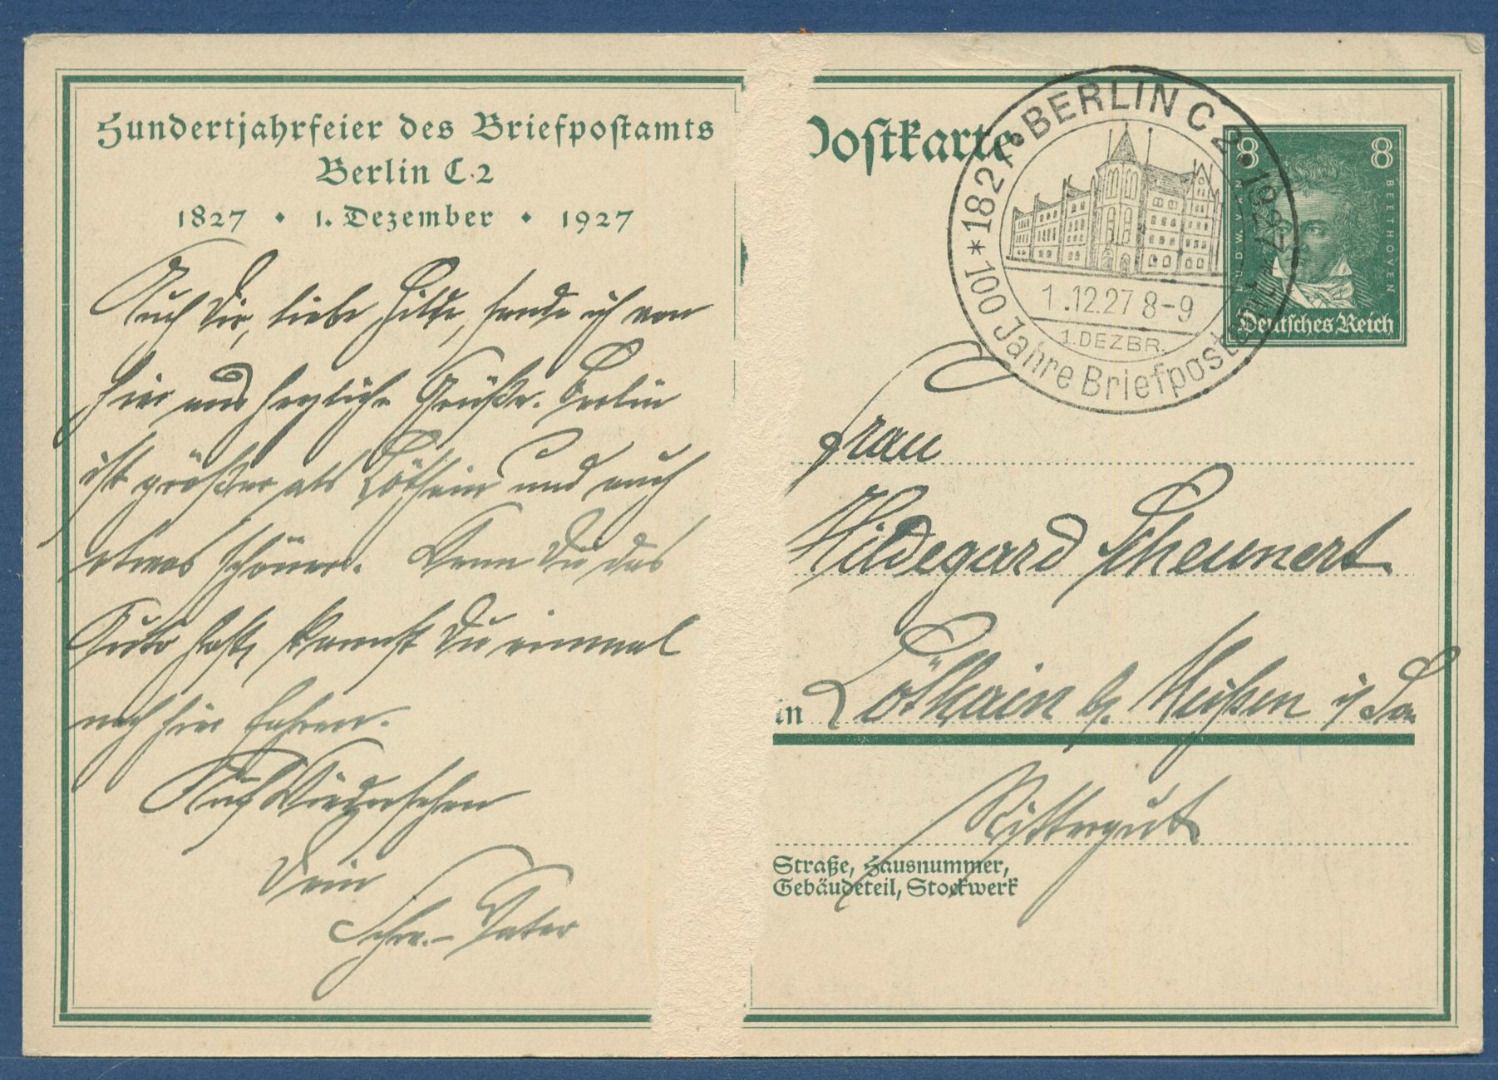 Hundertjahrfeier des Briefpostamts
Berlin C.2
1827 • 1. Dezember • 1927
Auch Dir, liebe Hilde, sende ich von
hier aus herzliche Grüße. Berlin
ist größer als Löthain und auch
etwas schöner. Wenn Du das
Auto hast, kannst Du einmal
nach hier fahren.
Auf Wiedersehen
Dein
Schw.-Vater
Postkarte
* 1827 • BERLIN C 2 • 1927 *
1.12.27 8-9
1. DEZBR.
100 Jahre Briefpostamt
8 8
LUDW. VAN BEETHOVEN
Deutsches Reich
Frau
Hildegard Scheunert
in Löthain b. Meißen i/Sa.
Rittergut
Straße, Hausnummer,
Gebäudeteil, Stockwerk